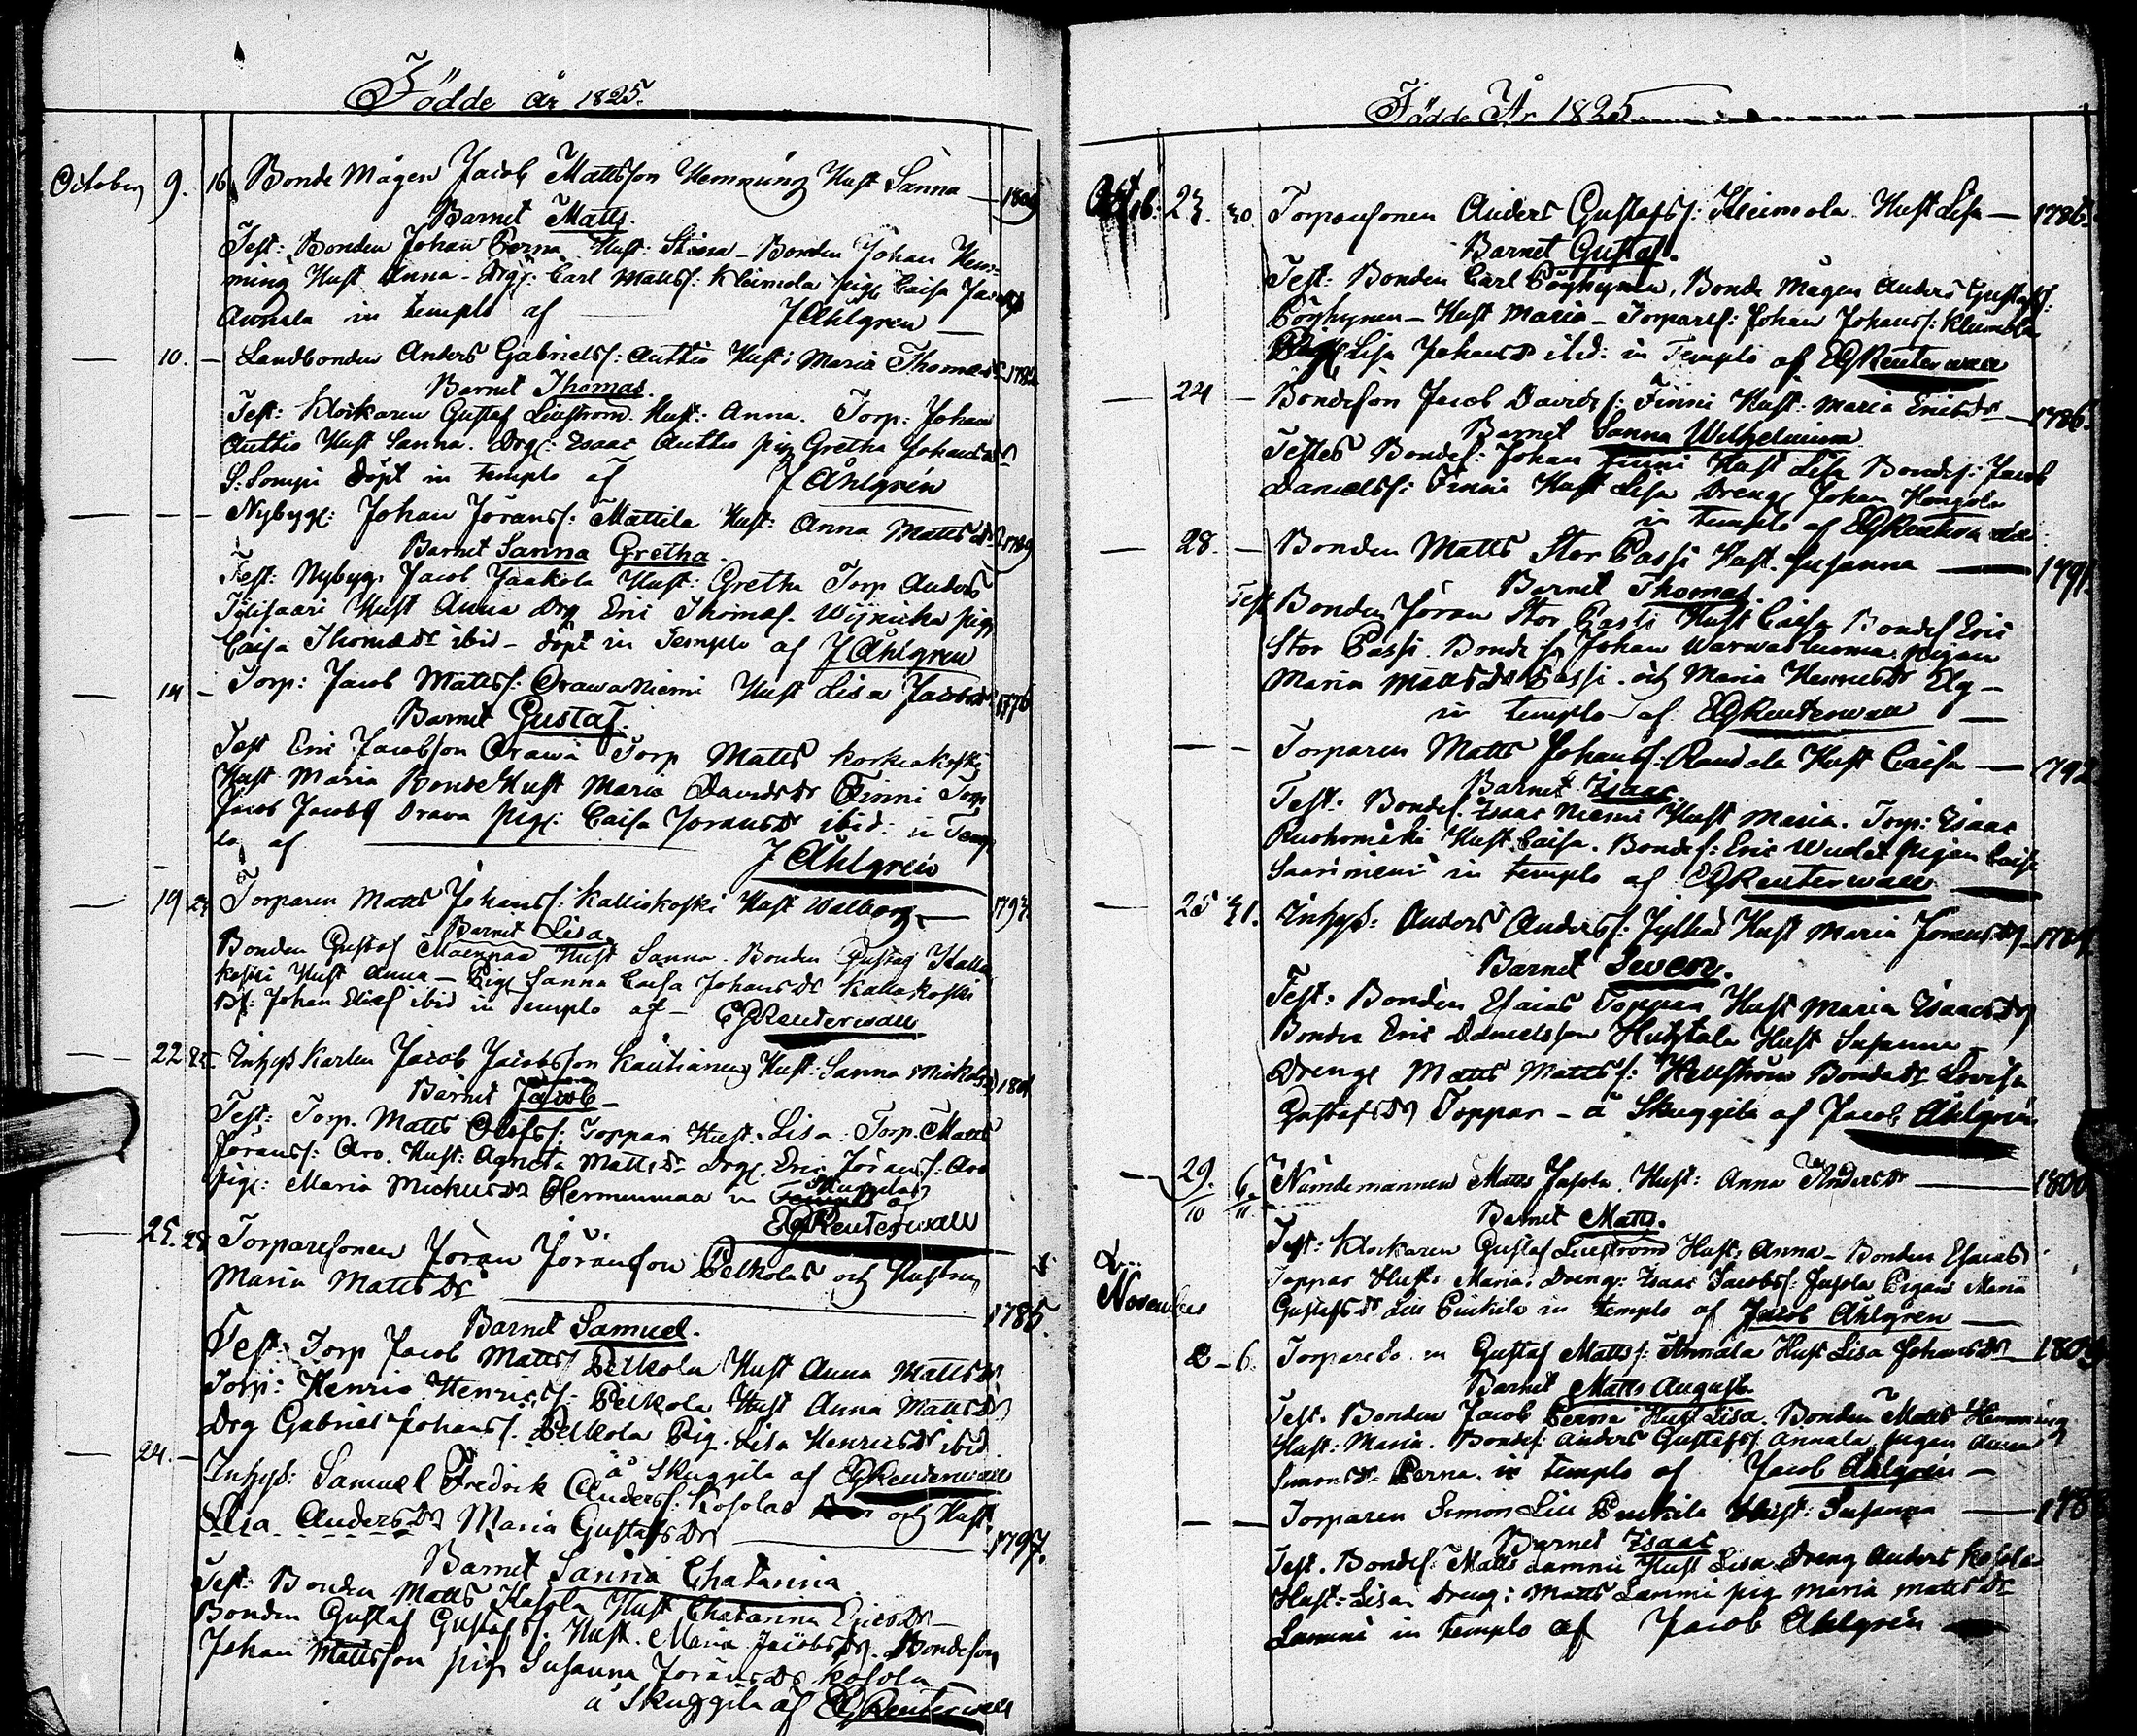 Födde år 1825.
October 9. 16 Bonde Mågen Jacob Mattsson Hemming Hust Sanna — 1804
Barnet Matts.
Test: Bonden Johan Perna Hust: Stina — Bonden Johan Hem-
ming Hust Anna — Drg: Carl Mattss: Kleimola pig Caisa
Annala in templo af J Åhlgrén —
— 10. — Landbonden Anders Gabrielss: Auttio Hust: Maria Thomasdr 1782
Barnet Thomas.
Test: Klockaren Gustaf Liliström Hust: Anna. Torp: Johan
Auttio Hust Sanna. Drg: Isaac Auttio pig Gretha Johansdr
S: Sompi döpt in templo af J Åhlgrén
— — — Nybygg: Johan Jöranss: Mattila Hust: Anna Mattsdr
Barnet Sanna Gretha.
Test: Nybyg. Jacob Jaakola Hust: Gretha Torp Anders
Hust Anna Drg Eric Thomas. pig
Caisa Thomasdr ibid — döpt in Templo af J Åhlgrén
— 14 — Torp: Jacob Mattss: Orawaniemi Hust Lisa Jacobsdr 1776
Barnet Gustaf.
Test Eric Jacobsson Orawa Torp Matts Korkiakoski
Hust Maria Bonde Hust Maria Davidsdr Finni Torp
Jacob Jacobs Orava pig: Caisa Joransdr ibid: in Temp
lo af J Åhlgrén
— 19 23 Torparen Matts Johanss: Kalliokoski Hust Walborg — 1793
Barnet Lisa
Bonden Gustaf Mäenpää Hust Sanna. Bonden Gustaf Kallio
koski Hust Anna — Pig Sanna Caisa Johansdr Kaliokoski
Bs: Johan Elias ibid in Templo af — EGReuterwall
— 22 23 Inhys Karlen Jacob Jacobsson Kautiainen Hust: Sanna 1801
Barnet Jacob —
Test: Torp. Matts Olofss: Toppari Hust. Lisa. Torp. Matts
Jöranss: Aro. Hust: Agneta Mattsdr Drg. Eric Jöranss: Aro
pig: Maria Michelsdr Hermunmaa
EGReuterwall
— 25. 28 Torparesonen Jöran Jöransson Pelkola och Hustru
Maria Mattsdr — 1785.
Barnet Samuel.
Test: Torp Jacob Matts Pelkola Hust Anna Mattsdr
Torp: Henric Henricss: Pelkola Hust Anna Mattsdr
Drg Gabriel Johanss. Pelkola Pig. Lisa Henricsdr ibid
å Skuggila af EGReuterwall
— 24. — Inhys: Samuel Fredrik Anderss: Kosola och Hust.
Lisa Andersdr Maria Gustafsdr — 1797.
Barnet Sanna Chatarina.
Test: Bonden Matts Kasola Hust Chatarina Ericsdr —
Bonden Gustaf Gustafss. Hust. Maria Jacobsdr. Bondeson
Johan Mattsson pig Susanna Joransdr Kosola —
å Skuggila af EGReuterwall
Födde År 1825
Octob: 23. 30 Torparesonen Anders Gustafs: Kleimola. Hust Lisa — 1786
Barnet Gustaf.
Test: Bonden Carl Pöyhynen, Bonde Mågen Anders Gustafss:
Pöyhynen — Hust Maria — Torpares: Johan Johanss: Kleimola
Pig Lisa Johansdr ibid: in Templo af EGReuterwall
— 24 — Bondeson Jacob Davids: Finni Hust: Maria Ericsdr — 1786.
Barnet Sanna Wilhelmina
Testes Bondes: Johan Finni Hust Lisa Bondes: Jacob
Danielss: Finni Hust Lisa Dreng Johan
in templo af EGReuterwall
— 28. — Bonden Matts Stor Passi Hust. Susanna — 1791.
Barnet Thomas
Test Bonden Jöran Stor Passi Hust Caisa Bondes Eric
Stor Passi. Bondes Johan pigan
Maria Mattsdr Passi. och Maria Hannusdr Elg —
in templo af EGReuterwall —
— — Torparen Matts Johanss: Randala Hust Caisa — 1792
Barnet Isaac.
Test: Bondes. Isaac Niemi Hust Maria. Torp: Isaac
Ruohomäki Hust Caisa. Bondes: Eric pigan Caisa
Saariniemi in templo af EGReuterwall
— 25 31. Inhys: Anders Anderss: Jylhä Hust Maria Joransdr
Barnet Sweny.
Test: Bonden Esaias Toppar Hust Maria Isaacsdr
Bonden Eric Danielsson Huhtala Hust Susanna —
Dreng Matts Mattss: Hellström Bondedr Lovisa
Gustafsdr Toppar — å Skuggila af Jacob Åhlgrén
— 29./10 6./11 Nämdemannen Matts Jusola. Hust: Anna Andersdr — 1800
Barnet Matts.
Test: Klockaren Gustaf Liliström Hust: Anna — Bonden Esaias
Toppar Hust: Maria. Dreng: Isaac Jacobss: Jusola Pigan Maria
Gustafsdr Lill Pinkila in templo af Jacob Åhlgrén —
November
2 — 6. Gustaf Mattss: Annala Hust Lisa Johansdr — 1803
Barnet Matts August
Test. Bonden Jacob Perna Hust Lisa. Bonden Matts Hemming
Hust: Maria. Bondes: Anders Gustafss: Annala, pigan Anna
Simonsdr Perna. in templo af Jacob Åhlgrén —
— — Torparen Simon Lill Pinkila Hust: Susanna —
Barnet Isaac
Test. Bondes: Matts Lammi Hust Lisa Dreng Anders Kosola
Hust: Lisa Dreng: Matts Lammi pig Maria Mattsdr
Lammi in templo af Jacob Åhlgrén —